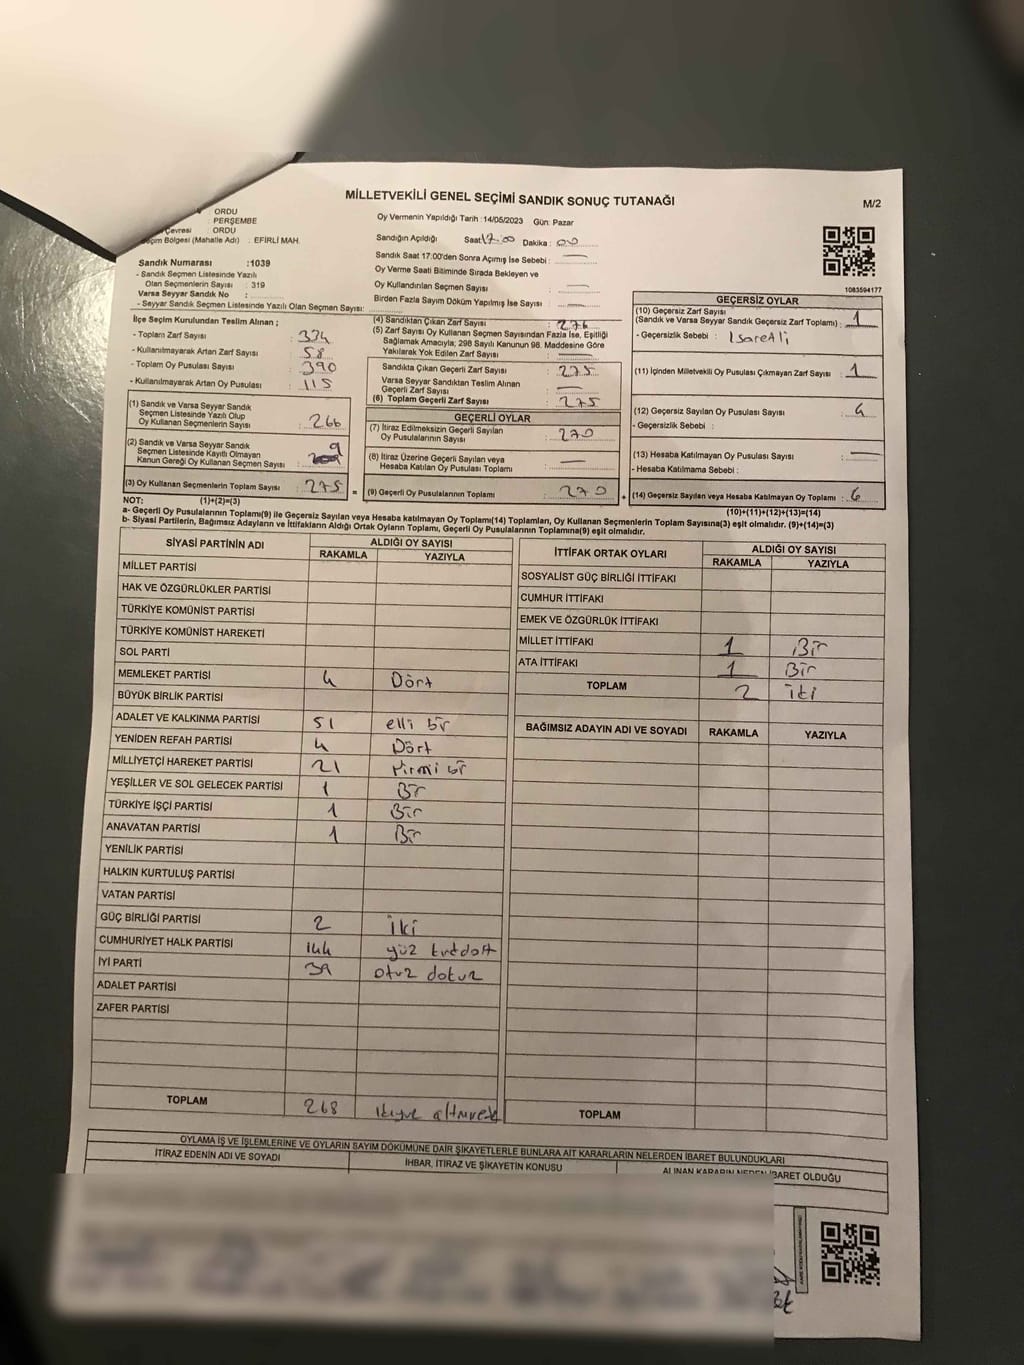 MİLLETVEKİLİ GENEL SEÇİMİ SANDIK SONUÇ TUTANAĞI
M/2
ORDU
: PERŞEMBE
Çevresi : ORDU
Seçim Bölgesi (Mahalle Adı) : EFİRLİ MAH.
Oy Vermenin Yapıldığı Tarih : 14/05/2023 Gün: Pazar
Sandığın Açıldığı Saat 17.00 Dakika : 00
Sandık Saat 17:00'den Sonra Açılmış İse Sebebi : —
Oy Verme Saati Bitiminde Sırada Bekleyen ve
Oy Kullandırılan Seçmen Sayısı : —
Birden Fazla Sayım Döküm Yapılmış İse Sayısı : —
Sandık Numarası :1039
- Sandık Seçmen Listesinde Yazılı
Olan Seçmenlerin Sayısı : 319
Varsa Seyyar Sandık No :
- Seyyar Sandık Seçmen Listesinde Yazılı Olan Seçmen Sayısı:
1083594177
İlçe Seçim Kurulundan Teslim Alınan ;
- Toplam Zarf Sayısı : 334
- Kullanılmayarak Artan Zarf Sayısı : 58
- Toplam Oy Pusulası Sayısı : 390
- Kullanılmayarak Artan Oy Pusulası : 115
(1) Sandık ve Varsa Seyyar Sandık
Seçmen Listesinde Yazılı Olup
Oy Kullanan Seçmenlerin Sayısı : 266
(2) Sandık ve Varsa Seyyar Sandık
Seçmen Listesinde Kayıtlı Olmayan
Kanun Gereği Oy Kullanan Seçmen Sayısı : 9
(3) Oy Kullanan Seçmenlerin Toplam Sayısı : 275
(4) Sandıktan Çıkan Zarf Sayısı : 276
(5) Zarf Sayısı Oy Kullanan Seçmen Sayısından Fazla İse, Eşitliği
Sağlamak Amacıyla; 298 Sayılı Kanunun 98. Maddesine Göre
Yakılarak Yok Edilen Zarf Sayısı : —
Sandıkta Çıkan Geçerli Zarf Sayısı : 275
Varsa Seyyar Sandıktan Teslim Alınan
Geçerli Zarf Sayısı : —
(6) Toplam Geçerli Zarf Sayısı : 275
GEÇERLİ OYLAR
(7) İtiraz Edilmeksizin Geçerli Sayılan
Oy Pusulalarının Sayısı : 270
(8) İtiraz Üzerine Geçerli Sayılan veya
Hesaba Katılan Oy Pusulası Toplamı : —
= (9) Geçerli Oy Pusulalarının Toplamı : 270 +
GEÇERSİZ OYLAR
(10) Geçersiz Zarf Sayısı
(Sandık ve Varsa Seyyar Sandık Geçersiz Zarf Toplamı) : 1
- Geçersizlik Sebebi : İşaretli
(11) İçinden Milletvekili Oy Pusulası Çıkmayan Zarf Sayısı : 1
(12) Geçersiz Sayılan Oy Pusulası Sayısı : 4
- Geçersizlik Sebebi :
(13) Hesaba Katılmayan Oy Pusulası Sayısı : —
- Hesaba Katılmama Sebebi :
(14) Geçersiz Sayılan veya Hesaba Katılmayan Oy Toplamı : 6
NOT: (1)+(2)=(3)
(10)+(11)+(12)+(13)=(14)
a- Geçerli Oy Pusulalarının Toplamı(9) ile Geçersiz Sayılan veya Hesaba katılmayan Oy Toplamı(14) Toplamları, Oy Kullanan Seçmenlerin Toplam Sayısına(3) eşit olmalıdır. (9)+(14)=(3)
b- Siyasi Partilerin, Bağımsız Adayların ve İttifakların Aldığı Ortak Oyların Toplamı, Geçerli Oy Pusulalarının Toplamına(9) eşit olmalıdır.
SİYASİ PARTİNİN ADI
ALDIĞI OY SAYISI
RAKAMLA YAZIYLA
MİLLET PARTİSİ
HAK VE ÖZGÜRLÜKLER PARTİSİ
TÜRKİYE KOMÜNİST PARTİSİ
TÜRKİYE KOMÜNİST HAREKETİ
SOL PARTİ
MEMLEKET PARTİSİ 4 Dört
BÜYÜK BİRLİK PARTİSİ
ADALET VE KALKINMA PARTİSİ 51 elli bir
YENİDEN REFAH PARTİSİ 4 Dört
MİLLİYETÇİ HAREKET PARTİSİ 21 yirmi bir
YEŞİLLER VE SOL GELECEK PARTİSİ 1 Bir
TÜRKİYE İŞÇİ PARTİSİ 1 Bir
ANAVATAN PARTİSİ 1 Bir
YENİLİK PARTİSİ
HALKIN KURTULUŞ PARTİSİ
VATAN PARTİSİ
GÜÇ BİRLİĞİ PARTİSİ 2 İki
CUMHURİYET HALK PARTİSİ 144 yüz
İYİ PARTİ 39 otuz dokuz
ADALET PARTİSİ
ZAFER PARTİSİ
TOPLAM 268
İTTİFAK ORTAK OYLARI
ALDIĞI OY SAYISI
RAKAMLA YAZIYLA
SOSYALİST GÜÇ BİRLİĞİ İTTİFAKI
CUMHUR İTTİFAKI
EMEK VE ÖZGÜRLÜK İTTİFAKI
MİLLET İTTİFAKI 1 Bir
ATA İTTİFAKI 1 Bir
TOPLAM 2 iki
BAĞIMSIZ ADAYIN ADI VE SOYADI RAKAMLA YAZIYLA
TOPLAM
OYLAMA İŞ VE İŞLEMLERİNE VE OYLARIN SAYIM DÖKÜMÜNE DAİR ŞİKAYETLERLE BUNLARA AİT KARARLARIN NELERDEN İBARET BULUNDUKLARI
İTİRAZ EDENİN ADI VE SOYADI
İHBAR, İTİRAZ VE ŞİKAYETİN KONUSU
ALINAN KARARIN NEDEN İBARET OLDUĞU